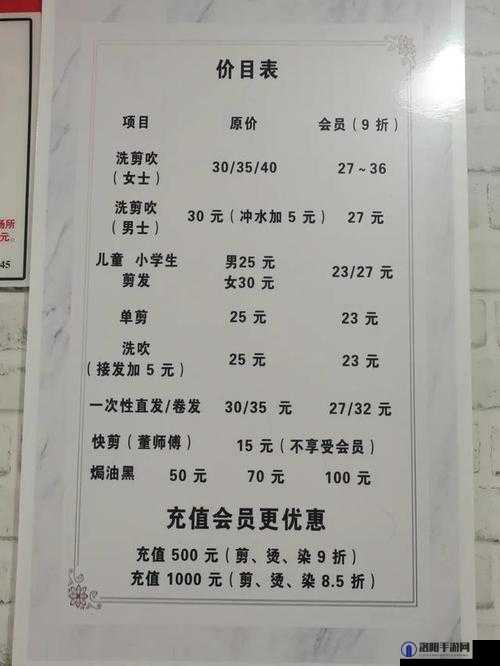 价目表
项目 原价 会员（9 折）
洗剪吹
（女士） 30/35/40 27～36
洗剪吹
（男士） 30 元（冲水加 5 元） 27 元
儿童 小学生 男25 元
剪发 女30 元 23/27 元
单剪 25 元 23 元
洗吹
（接发加 5 元） 25 元 23 元
一次性直发/卷发 30/35 元 27/32 元
快剪（董师傅） 15 元（不享受会员）
焗油黑 50 元 70 元 100 元
充值会员更优惠
充值 500 元（剪、烫、染 9 折）
充值 1000 元（剪、烫、染 8.5 折）
场所
元。
45
洛阳手游网